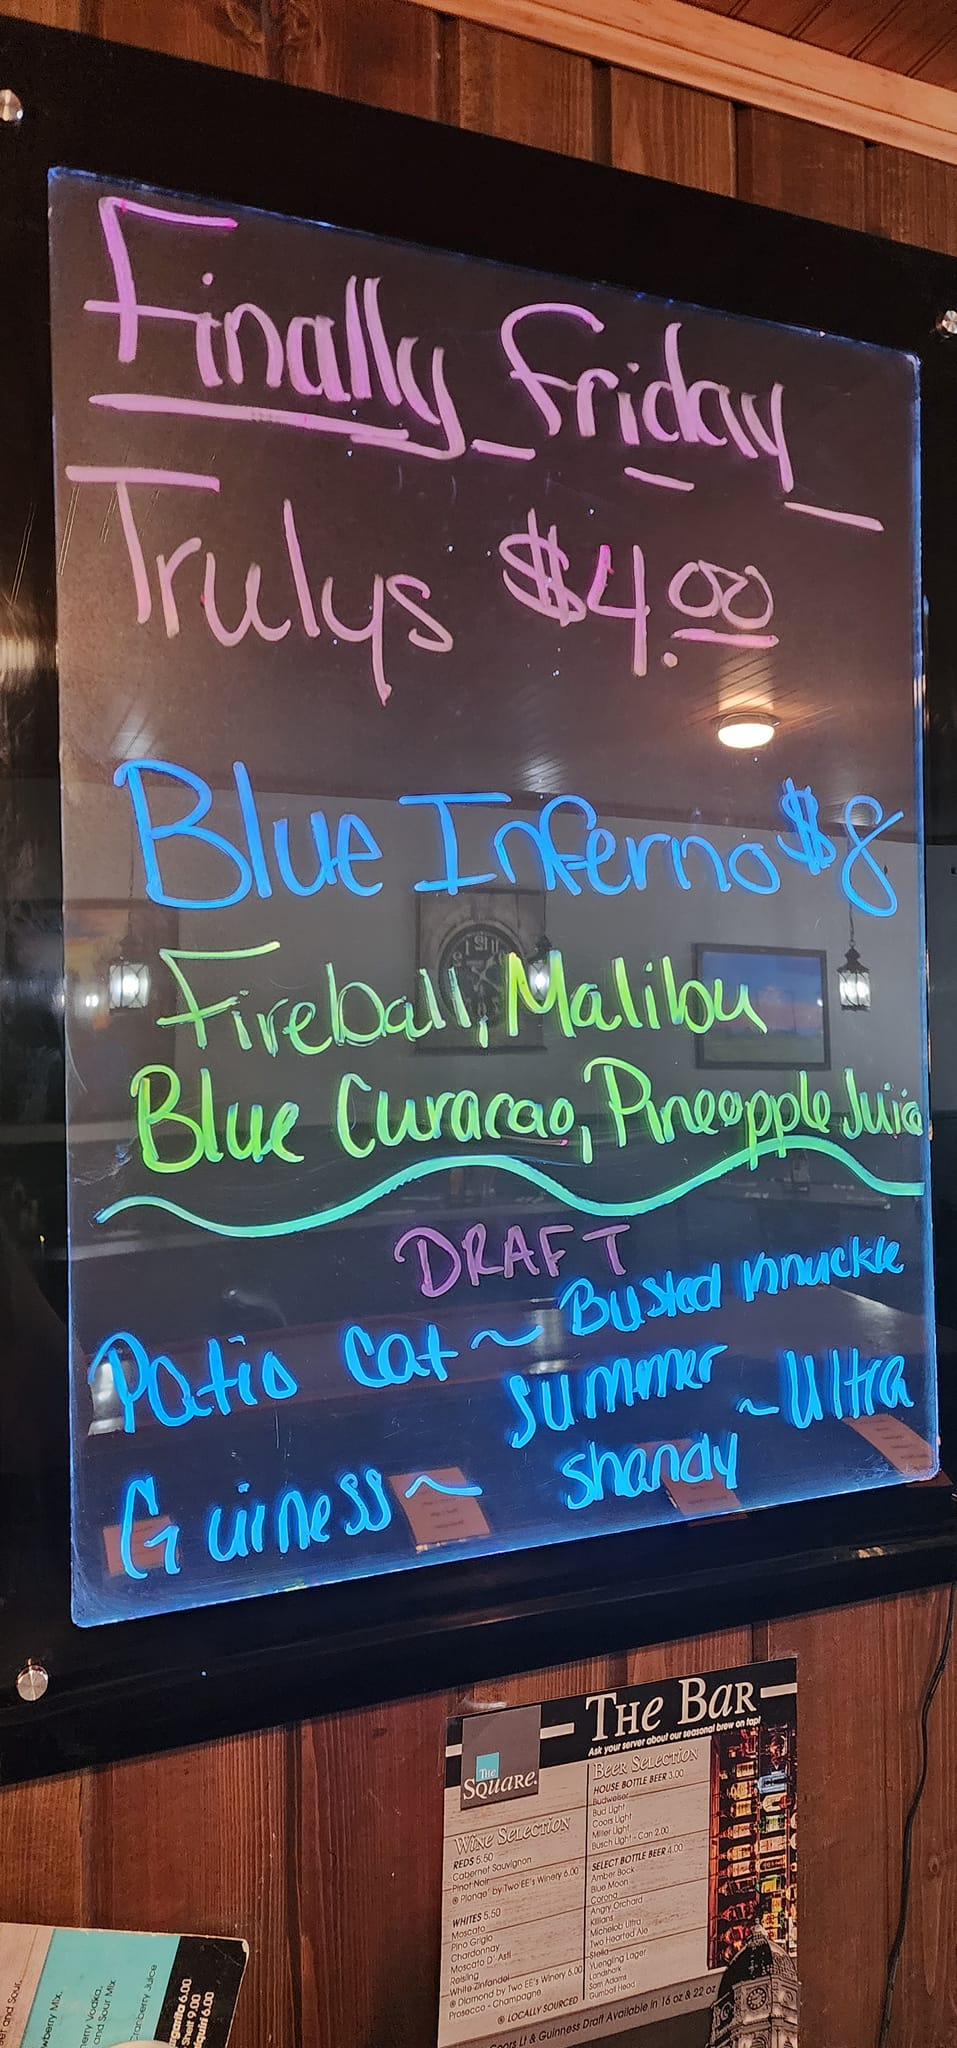 Finally Friday
Trulys $4.00
Blue Inferno $8
Fireball, Malibu
Blue Curacao, Pineapple Juice
DRAFT
Patio Cat ~ Busted Knuckle
Summer ~ Ultra
Guiness ~ Shandy
THE BAR
Ask your server about our seasonal brew on tap!
THE
SQUARE.
WINE SELECTION
REDS 5.50
Cabernet Sauvignon
Pinot Noir
by Two EE's Winery 6.00
WHITES 5.50
Moscato
Pino Grigio
Chardonnay
Moscato D' Asti
Reisling
White Zinfandel
Diamond by Two EE's Winery 6.00
Prosecco - Champagne
LOCALLY SOURCED
BEER SELECTION
HOUSE BOTTLE BEER 3.00
Budweiser
Bud Light
Coors Light
Miller Light
Busch Light - Can 2.00
SELECT BOTTLE BEER 4.00
Amber Bock
Blue Moon
Corona
Angry Orchard
Killians
Michelob Ultra
Two Hearted Ale
Stella
Yuengling Lager
Landshark
Sam Adams
Gumball Head
Coors Lt & Guinness Draft Available in 16 oz & 22 oz
and Sour Mix
6.00
9.00
6.00